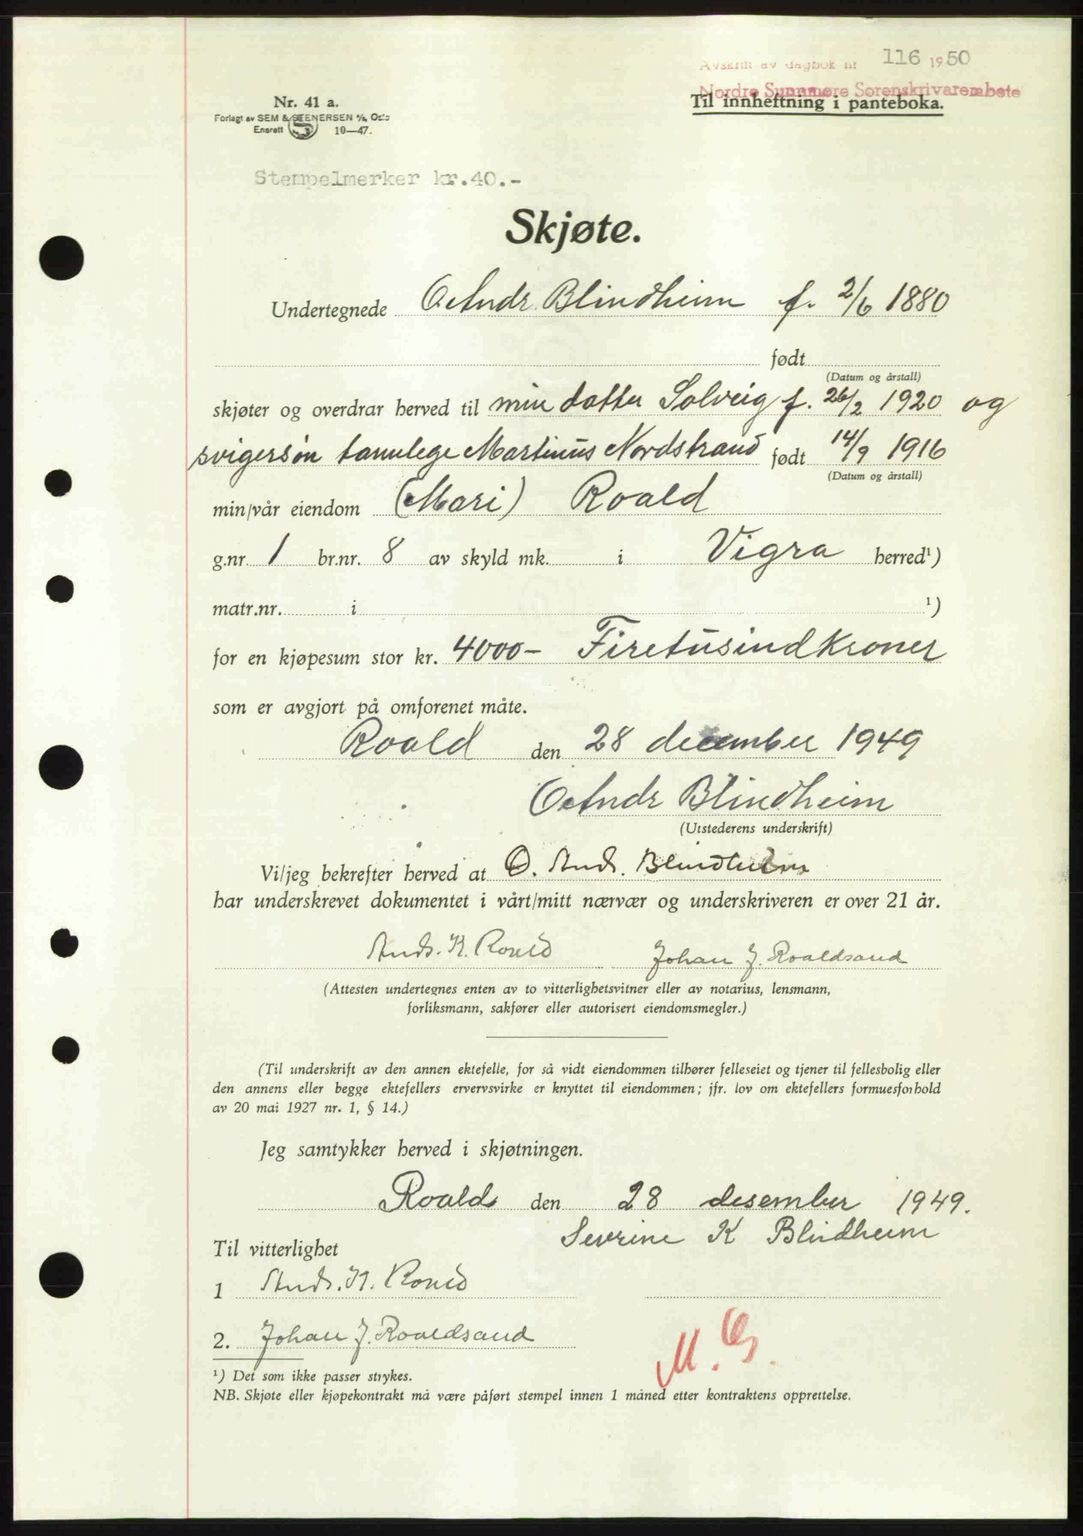 Avskrift av dagbok nr 116 1950
Nordre Sunnmøre Sorenskrivarembete
Nr. 41 a.
Til innheftning i panteboka.
Forlagt av SEM & STENERSEN A/S, Oslo
Enerett 10—47.
Stempelmerker kr.40.-
Skjøte.
Undertegnede O Andr. Blindheim f. 2/6 1880
født
(Datum og årstall)
skjøter og overdrar herved til min datter Solveig f. 26/2 1920 og
svigersøn tannlege Martinus Nordstrand født 14/9 1916
(Datum og årstall)
min/vår eiendom (Mari) Roald
g.nr. 1 br.nr. 8 av skyld mk. i Vigra herred¹)
matr.nr. i ¹)
for en kjøpesum stor kr. 4000- Firetusindkroner
som er avgjort på omforenet måte.
Roald den 28 december 1949
O Andr Blindheim
(Utstederens underskrift)
Vi/jeg bekrefter herved at O. And. Blindheim
har underskrevet dokumentet i vårt/mitt nærvær og underskriveren er over 21 år.
Ands. K. Roald Johan J. Roaldsand
(Attesten undertegnes enten av to vitterlighetsvitner eller av notarius, lensmann,
forliksmann, sakfører eller autorisert eiendomsmegler.)
(Til underskrift av den annen ektefelle, for så vidt eiendommen tilhører felleseiet og tjener til fellesbolig eller
den annens eller begge ektefellers ervervsvirke er knyttet til eiendommen; jfr. lov om ektefellers formuesforhold
av 20 mai 1927 nr. 1, § 14.)
Jeg samtykker herved i skjøtningen.
Roald den 28 desember 1949.
Severine K Blindheim
Til vitterlighet
1 Ands. K. Roald
2. Johan J. Roaldsand
M. G.
¹) Det som ikke passer strykes.
NB. Skjøte eller kjøpekontrakt må være påført stempel innen 1 måned etter kontraktens opprettelse.